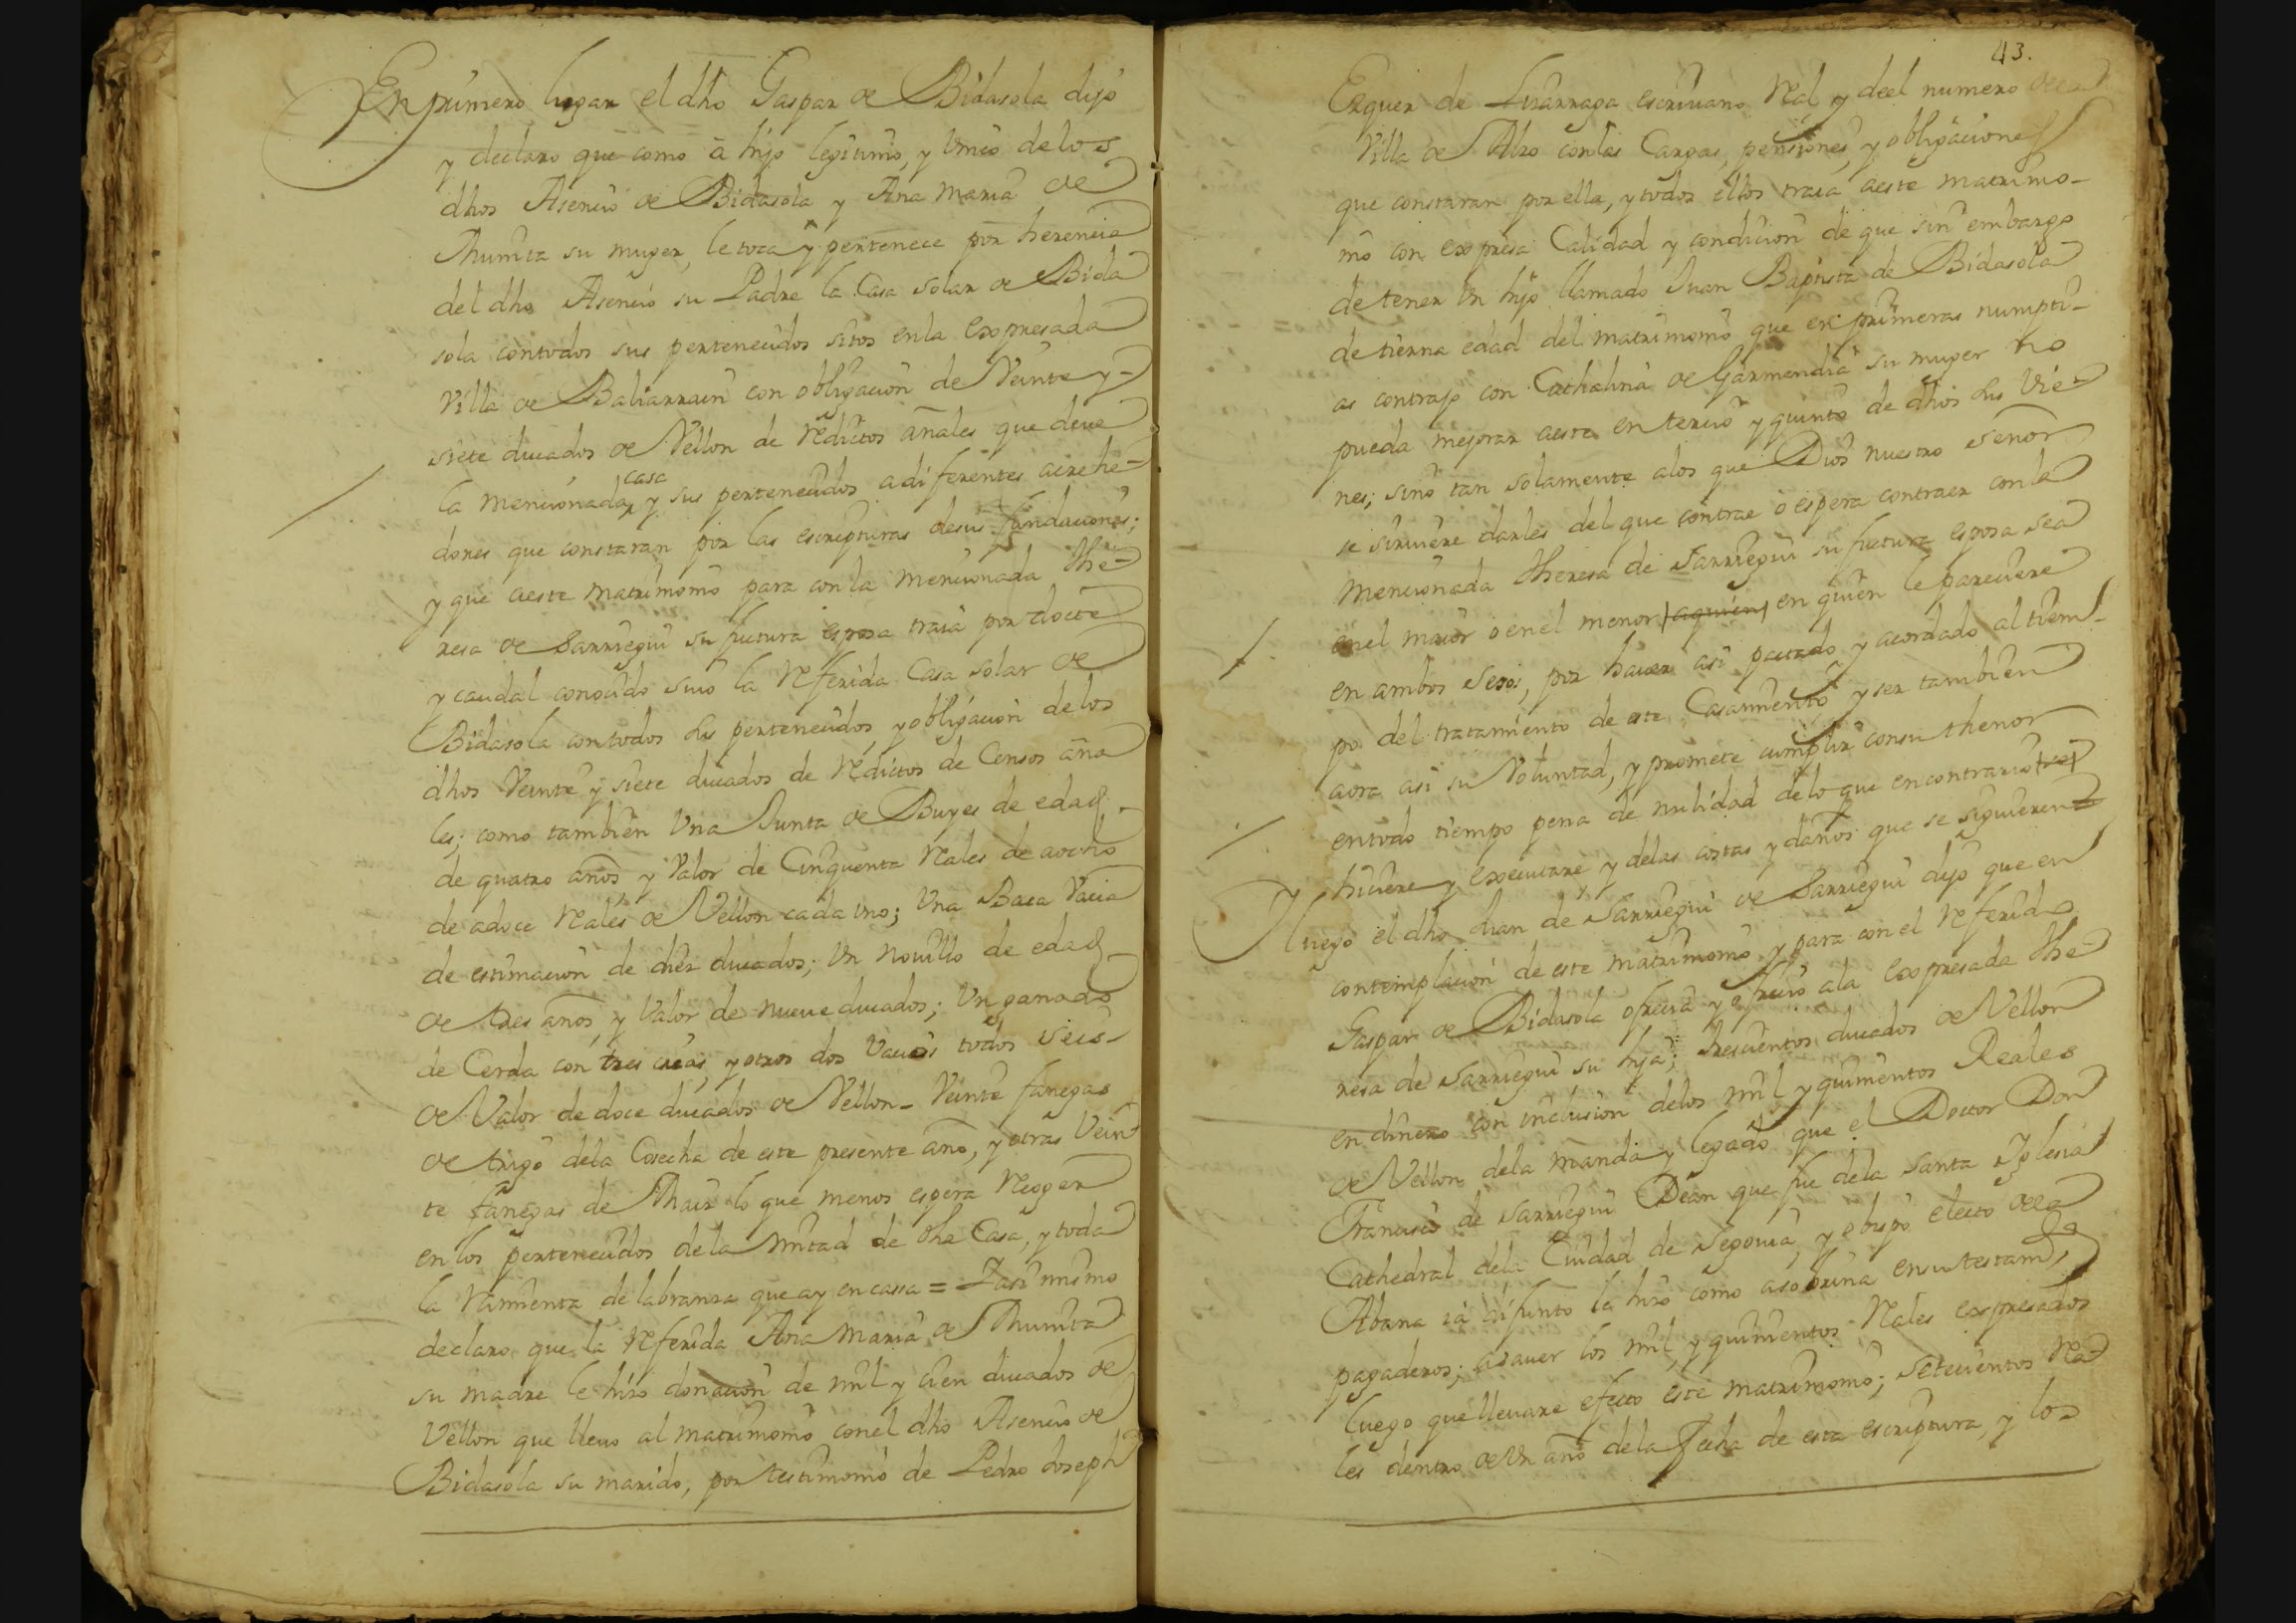 En primero lugar el dho Gaspar de Bidasola dijo
y declaro que como a hijo legitimo, y Unico de los
dhos Asencio de Bidasola y Ana Maria de
Munita su muger, le toca y pertenece por herencia
del dho Asencio su Padre la Casa solar de Bida
sola con todos sus pertenecidos sitos en la Expresada
Villa de Baliarrain con obligacion de Veinte y-
siete ducados de Vellon de reditos añales que deve
la mencionada casa y sus pertenecidos a diferentes acrehe-
dores que constaran por las escripturas de sus fundaciones;
y que a este matrimonio para con la mencionada The-
resa de Sarriegui su futura esposa traia por docte
y caudal conocido suio la Referida Casa solar de
Bidasola con todos sus pertenecidos, y obligacion de los
dhos Veinte y siete ducados de Reditos de Censos aña
les; como tambien Una Junta de Buyes de edad
de quatro años y Valor de Cinquenta Reales de aocho
de adoce Reales de Vellon cada uno; Una Baca Vacia
de estimacion de diez ducados; Un Novillo de edad
de tres años, y Valor de nueve ducados; Un ganado
de Cerda con tres crias, y otros dos Vacios todos seis
de Valor de doce ducados de Vellon- Veinte fanegas
de trigo de la Cosecha de este presente año, y otras Vein
te fanegas de Maiz lo que menos espera Recoger
en los pertenecidos de la Mitad de dha Casa, y toda
la Ramienta de labranza que ay en cassa = I asi mismo
declaro que la Referida Ana Maria de Munita
su madre le hizo donacion de mil y cien ducados de
Vellon que llevo al matrimonio con el dho Asencio de
Bidasola su marido, por testimonio de Pedro Joseph
43.
Ezquer de Lizarraga escrivano Real y del numero de la
Villa de Alzo con las Cargas, pensiones, y obligaciones
que constaran por ella, y todos ellos traia a este matrimo-
nio con expresa Calidad y condicion de que sin embargo
de tener Un hijo llamado Juan Baptista de Bidasola
de tierna edad del matrimonio que en primeras numpti-
as contrajo con Cathalina de Garmendia su muger no
pueda mejorar a este en tercio y quinto de dhos sus Vie-
nes; sino tan solamente a los que Dios nuestro señor
se sirviere darles del que contrae o espera contraer con la
mencionada Theresa de Sarriegui su futura esposa sea
en el maior o en el menor aquien en quien le pareciere
en ambos sexos, por haver asi pactado y acordado al tiem-
po del tratamiento de este Casamiento y ser tambien
aora asi su Voluntad, y promete cumplir con su thenor
en todo tiempo pena de nulidad de lo que en contrario
hiciere y executare y de las costas y daños que se siguieren=
I luego el dho Juan de Sarriegui de Sarriegui dijo que en
contemplacion de este matrimonio y para con el Referido
Gaspar de Bidasola ofrecia y ofrecio a la Expresada The-
resa de Sarriegui su hija; trescientos ducados de Vellon
en dinero con inclusion de los mil y quinientos Reales
de Vellon de la manda y legado que el Doctor Don
Francisco de Sarriegui Dean que fue de la Santa Iglesia
Cathedral de la Ciudad de Segovia, y obispo electo de la
Abana ia difunto la hizo como a sobrina en su testamto
pagaderos; a saver los mil y quinientos Reales expresados
luego que llevare efecto este matrimonio; setecientos Rea-
les dentro de Un año de la fecha de esta escriptura, y los